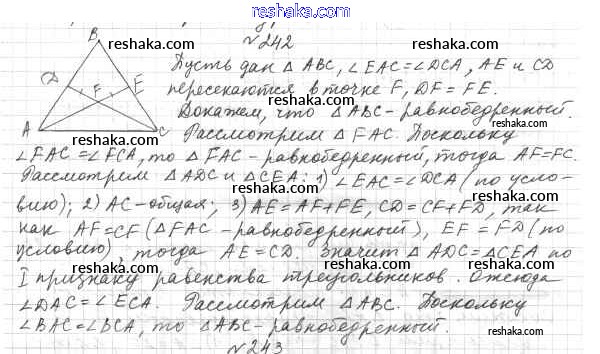 reshaka.com
№242
B reshaka.com reshaka.com
Пусть дан △ ABC, ∠EAC=∠DCA, AE и CD
D F E пересекаются в точке F, DF = FE.
reshaka.com
Докажем, что △ABC-равнобедренный.
A C Рассмотрим △FAC. Поскольку
reshaka.com reshaka.com
∠FAC=∠FCA, то △FAC-равнобедренный, тогда AF=FC.
Рассмотрим △ADC и △CEA: 1) ∠EAC=∠DCA (по усло-
reshaka.com reshaka.com
вию); 2) AC-общая; 3) AE=AF+FE, CD=CF+FD, так
как AF=CF (△FAC-равнобедренный), EF=FD (по
reshaka.com reshaka.com
условию), тогда AE=CD. Значит △ADC=△CEA по
I признаку равенства треугольников. Отсюда
reshaka.com reshaka.com
∠DAC=∠ECA. Рассмотрим △ABC. Поскольку
∠BAC=∠BCA, то △ABC-равнобедренный.
reshaka.com reshaka.com
№243